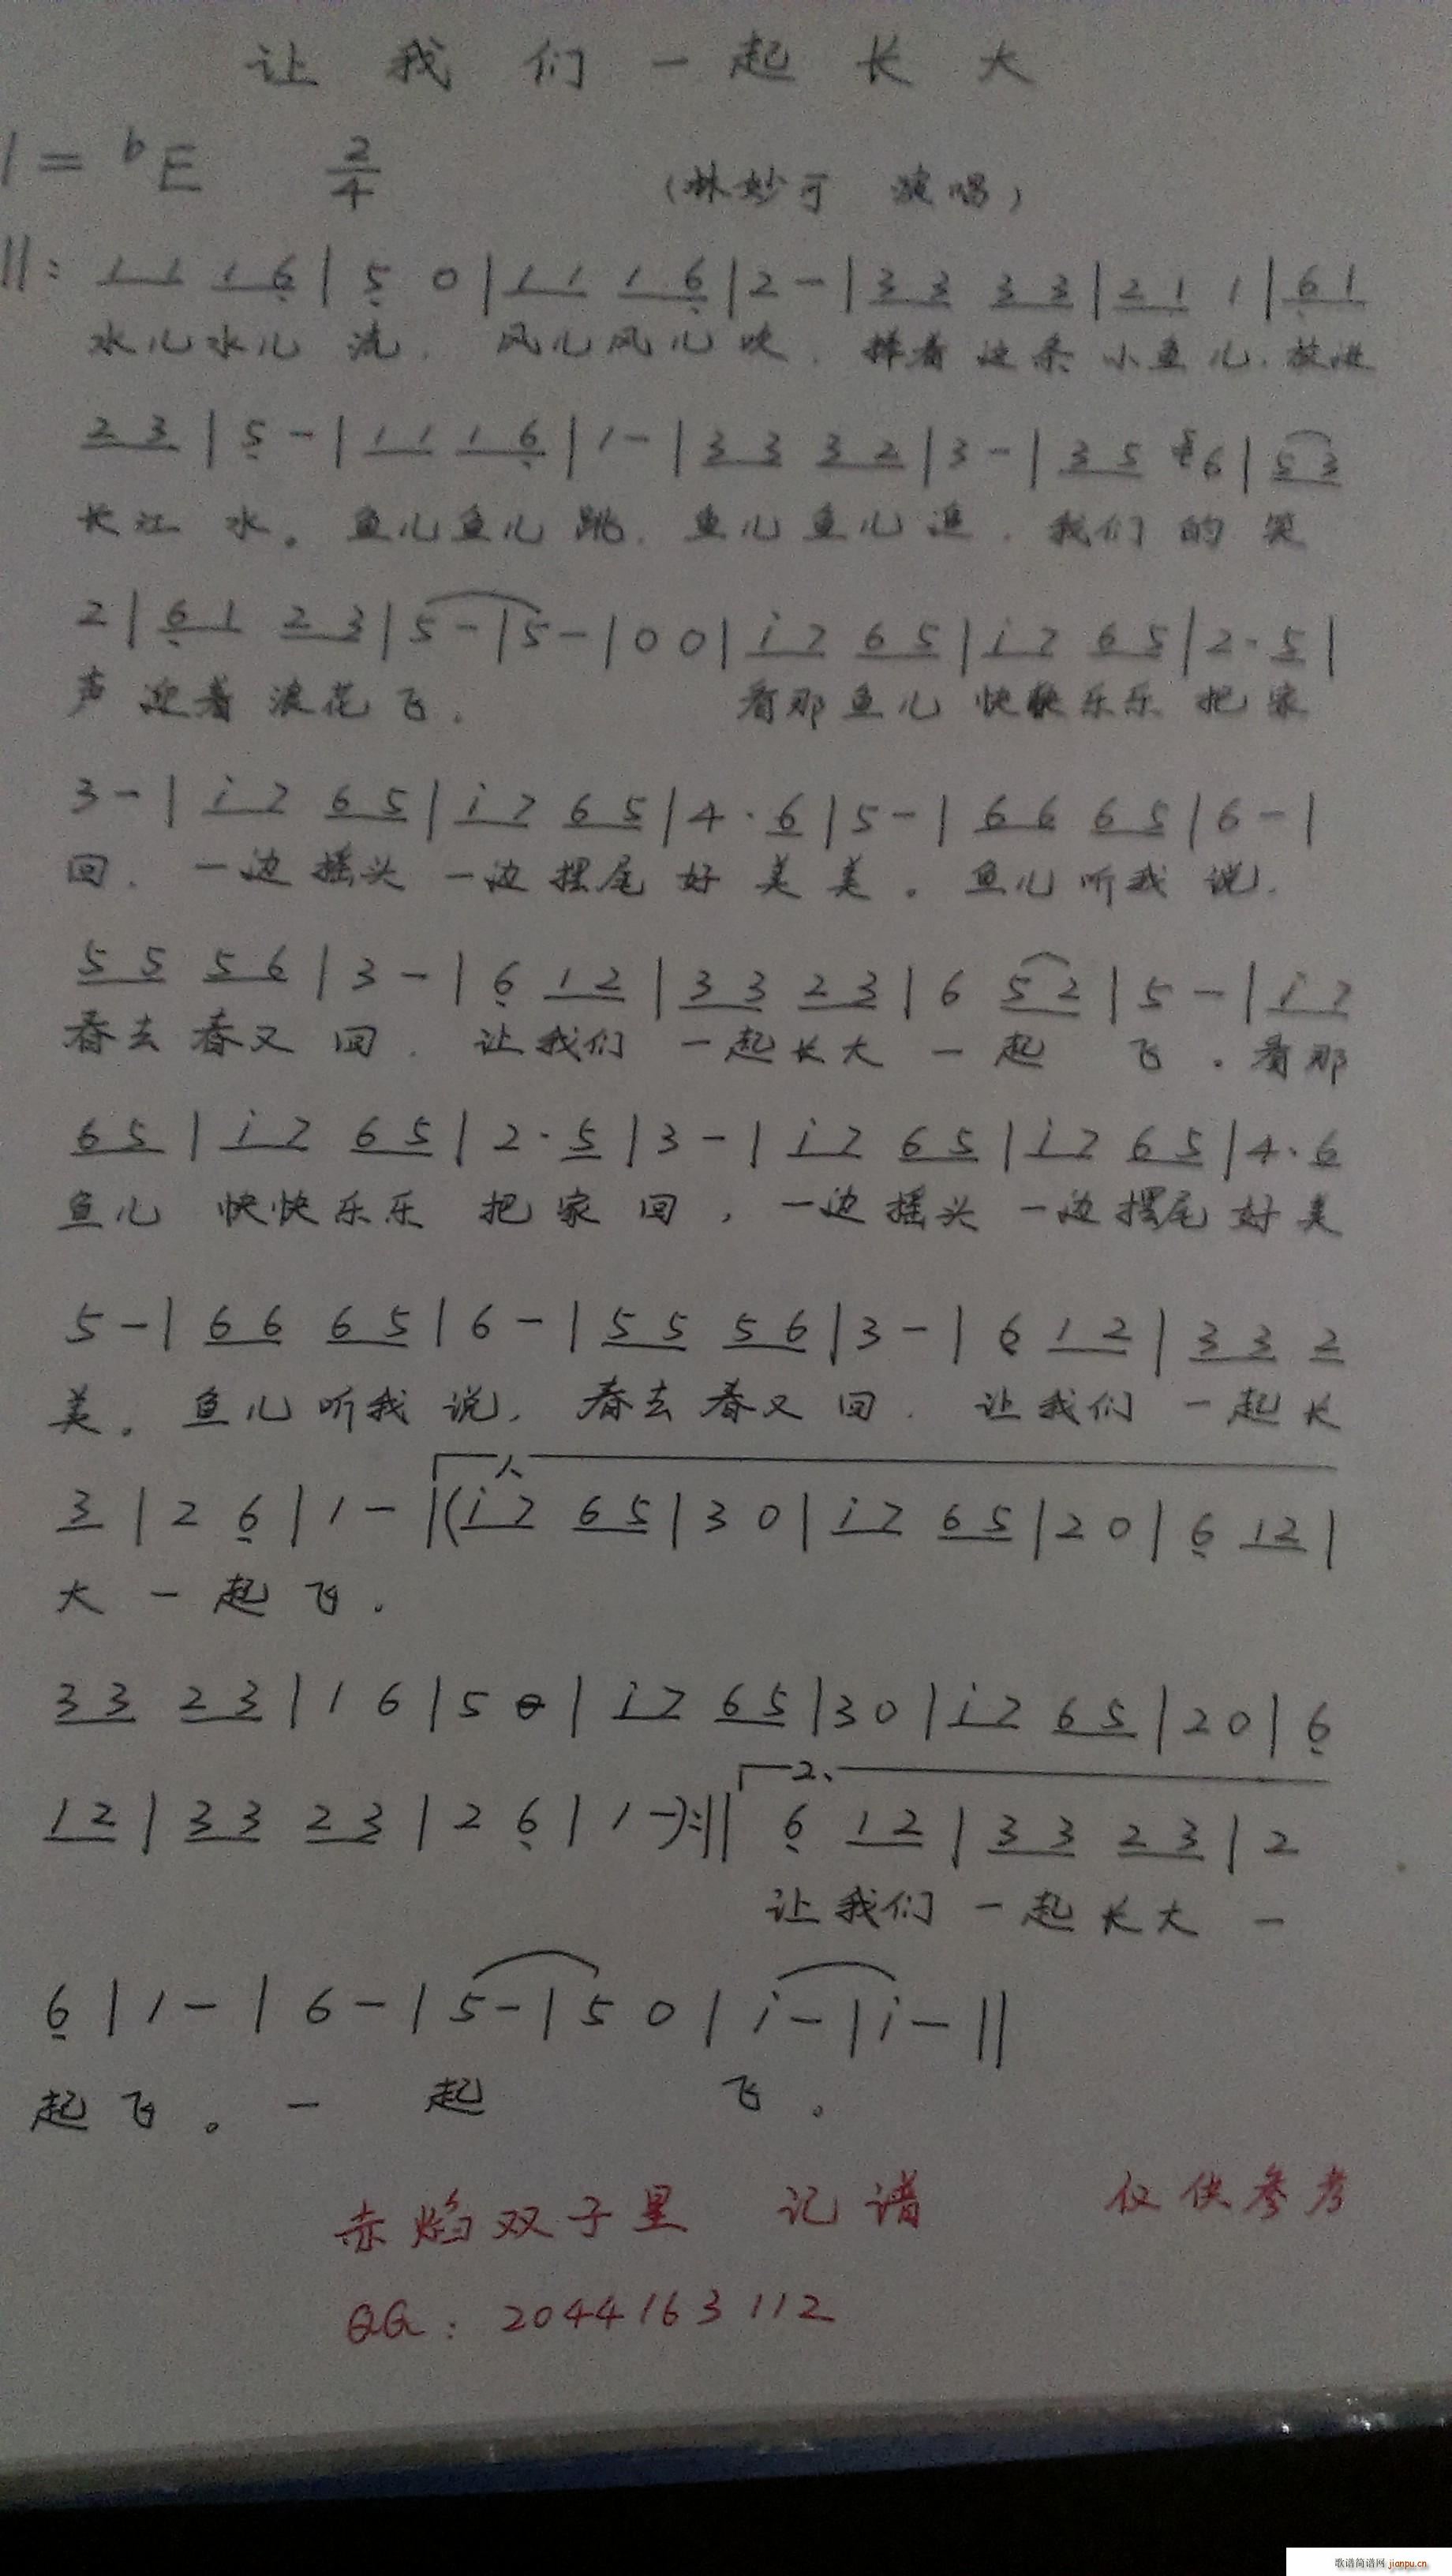 让我们一起长大
1=bE 2/4 (林妙可 演唱)
||: 1 1 1 6 | 5 0 | 1 1 1 6 | 2 - | 3 3 3 3 | 2 1 1 | 6 1
水儿水儿 流. 风儿风儿 吹. 捧着这条 小鱼儿. 放进
2 3 | 5 - | 1 1 1 6 | 1 - | 3 3 3 2 | 3 - | 3 5 6 | 5 3
长江 水。 鱼儿鱼儿 跳. 鱼儿鱼儿 追. 我们的 笑
2 | 6 1 2 3 | 5 - | 5 - | 0 0 | i 7 6 5 | i 7 6 5 | 2 · 5 |
声 迎着浪花 飞. 看那鱼儿 快快乐乐 把家
3 - | i 7 6 5 | i 7 6 5 | 4 · 6 | 5 - | 6 6 6 5 | 6 - |
回. 一边摇头 一边摆尾 好美 美。 鱼儿听我 说.
5 5 5 6 | 3 - | 6 1 2 | 3 3 2 3 | 6 5 2 | 5 - | i 7
春去春又 回. 让我们 一起长大 一起 飞. 看那
6 5 | i 7 6 5 | 2 · 5 | 3 - | i 7 6 5 | i 7 6 5 | 4 · 6
鱼儿 快快乐乐 把家 回, 一边摇头 一边摆尾 好美
5 - | 6 6 6 5 | 6 - | 5 5 5 6 | 3 - | 6 1 2 | 3 3 2
美。 鱼儿听我 说, 春去春又 回. 让我们 一起长
1、
3 | 2 6 | 1 - | (i 7 6 5 | 3 0 | i 7 6 5 | 2 0 | 6 1 2 |
大 一起 飞.
3 3 2 3 | 1 6 | 5 0 | i 7 6 5 | 3 0 | i 7 6 5 | 2 0 | 6
2、
1 2 | 3 3 2 3 | 2 6 | 1 -) :|| 6 1 2 | 3 3 2 3 | 2
让我们 一起长大 一
6 | 1 - | 6 - | 5 - | 5 0 | i - | i - ||
起 飞。 一 起 飞。
赤焰双子星 记谱 仅供参考
QQ: 2044163112
歌谱简谱网 jianpu.cn